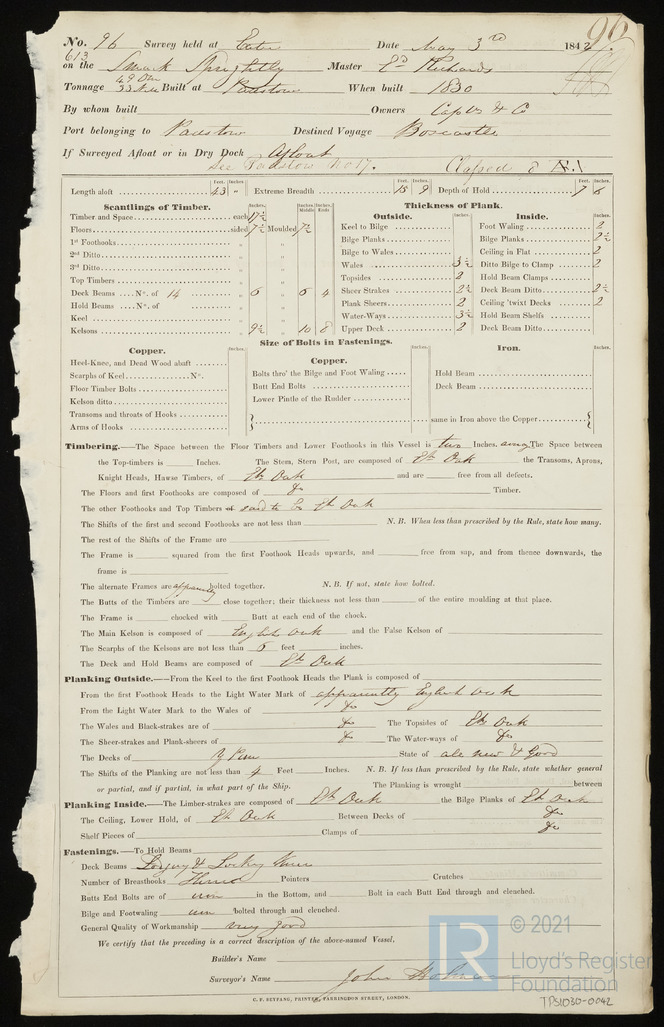 96
No. 96 Survey held at Exeter Date May 3rd 1842
613
on the Smack Sprightly Master Ed Richards
49 Om
Tonnage 33 New Built at Padstow When built 1830
By whom built Owners Capts & Co
Port belonging to Padstow Destined Voyage Boscastle
If Surveyed Afloat or in Dry Dock Afloat
See Padstow No 17. Classed
Feet. Inches. Feet. Inches. Feet. Inches.
Length aloft 43 " Extreme Breadth 15 9 Depth of Hold 7 6
Scantlings of Timber.
Inches. Inches Middle Inches Ends
Timber and Space each 17½
Floors sided 7½ Moulded 7½
1st Foothooks " "
2nd Ditto " "
3rd Ditto " "
Top Timbers " "
Deck Beams No. of 14 " 6 " 6 4
Hold Beams No. of " "
Keel " "
Kelsons " 9½ " 10 8
Thickness of Plank.
Outside. Inches.
Keel to Bilge
Bilge Planks
Bilge to Wales
Wales 3½
Topsides 2
Sheer Strakes 2½
Plank Sheers 2
Water-Ways 3½
Upper Deck 2
Inside. Inches.
Foot Waling 2
Bilge Planks 2½
Ceiling in Flat 2
Ditto Bilge to Clamp 2
Hold Beam Clamps
Deck Beam Ditto 2½
Ceiling 'twixt Decks 2
Hold Beam Shelfs
Deck Beam Ditto
Size of Bolts in Fastenings.
Copper. Inches.
Heel-Knee, and Dead Wood abaft
Scarphs of Keel No.
Floor Timber Bolts
Kelson ditto
Transoms and throats of Hooks
Arms of Hooks
Copper. Inches.
Bolts thro' the Bilge and Foot Waling
Butt End Bolts
Lower Pintle of the Rudder
Iron. Inches.
Hold Beam
Deck Beam
same in Iron above the Copper
Timbering.—The Space between the Floor Timbers and Lower Foothooks in this Vessel is two Inches. The Space between
the Top-timbers is Inches. The Stem, Stern Post, are composed of Eh Oak the Transoms, Aprons,
Knight Heads, Hawse Timbers, of Eh Oak and are free from all defects.
The Floors and first Foothooks are composed of do Timber.
The other Foothooks and Top Timbers of said to be Eh Oak
The Shifts of the first and second Foothooks are not less than N. B. When less than prescribed by the Rule, state how many.
The rest of the Shifts of the Frame are
The Frame is squared from the first Foothook Heads upwards, and free from sap, and from thence downwards, the
frame is
The alternate Frames are apparently bolted together. N. B. If not, state how bolted.
The Butts of the Timbers are close together; their thickness not less than of the entire moulding at that place.
The Frame is chocked with Butt at each end of the chock.
The Main Kelson is composed of English oak and the False Kelson of
The Scarphs of the Kelsons are not less than 6 feet inches.
The Deck and Hold Beams are composed of Eh Oak
Planking Outside.—From the Keel to the first Foothook Heads the Plank is composed of
From the first Foothook Heads to the Light Water Mark of apparently English oak
From the Light Water Mark to the Wales of do
The Wales and Black-strakes are of do The Topsides of Eh Oak
The Sheer-strakes and Plank-sheers of do The Water-ways of do
The Decks of Y Pine State of all new & Good
The Shifts of the Planking are not less than 4 Feet Inches. N. B. If less than prescribed by the Rule, state whether general
or partial, and if partial, in what part of the Ship. The Planking is wrought between
Planking Inside.—The Limber-strakes are composed of Eh Oak the Bilge Planks of Eh Oak
The Ceiling, Lower Hold, of Eh Oak Between Decks of do
Shelf Pieces of Clamps of do
Fastenings.—To Hold Beams
Deck Beams Lodging & Knees
Number of Breasthooks Three Pointers Crutches
Butts End Bolts are of iron in the Bottom, and Bolt in each Butt End through and clenched.
Bilge and Footwaling iron bolted through and clenched.
General Quality of Workmanship very good
We certify that the preceding is a correct description of the above-named Vessel.
Builder's Name
Surveyor's Name John
C. F. SEYFANG, PRINTER, FARRINGDON STREET, LONDON.
LR
© 2021
Lloyd's Register
Foundation
TPS1030-0042